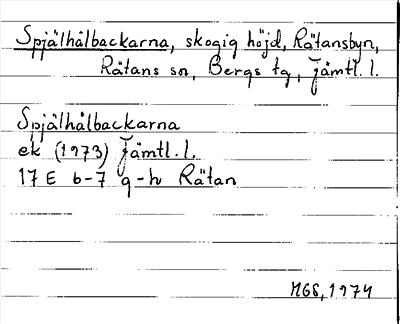 Spjälhålbackarna, skogig höjd, Rätansbyn,
Rätans sn, Bergs tg, Jämtl. l.
Spjälhålbackarna
ek (1973) Jämtl. l.
17 E 6-7 g-h Rätan
MGS, 1974